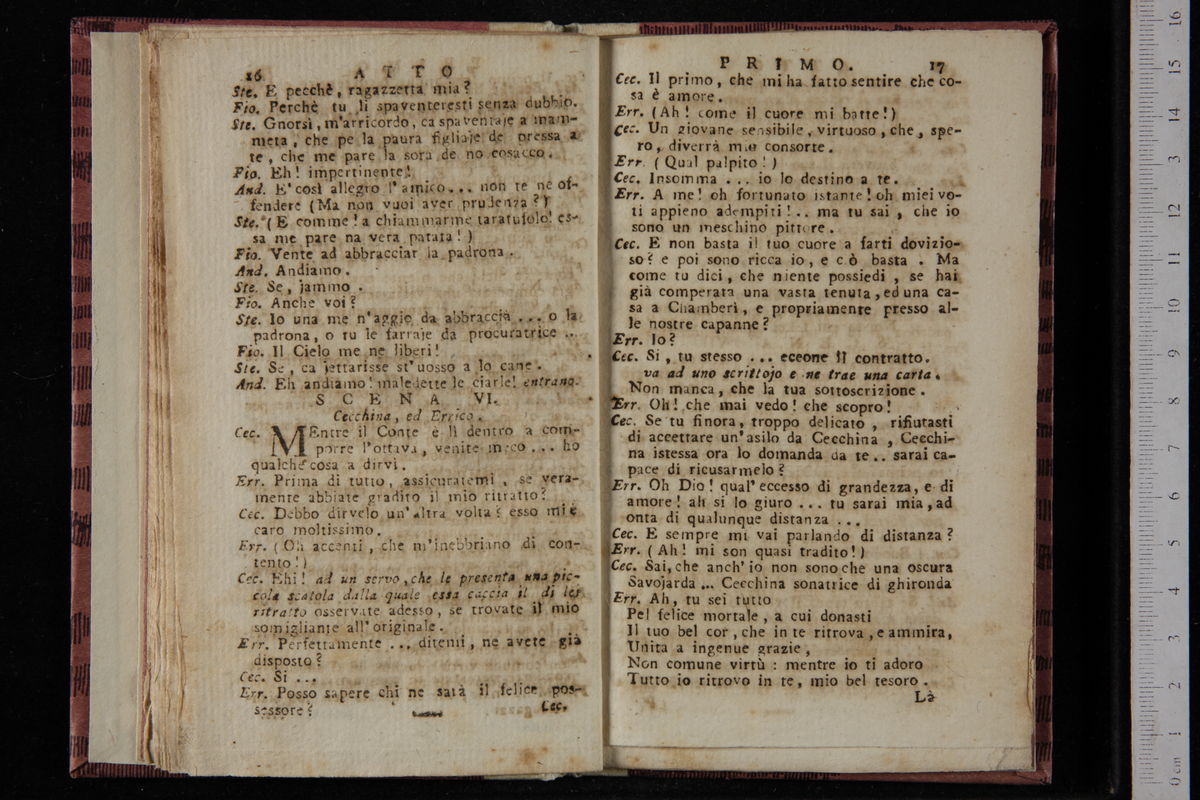 16 ATTO
Ste. E pecchè, ragazzetta mia?
Fio. Perchè tu li spaventeresti senza dubbio.
Ste. Gnorsì, m'arricordo, ca spaventaje a mam-
meta, che pe la paura figliaje de pressa a
te, che me pare la sora de no cosacco.
Fio. Eh! impertinente!
And. E' così allegro l'amico... non te ne of-
fendere (Ma non vuoi aver prudenza?)
Ste. (E comme! a chiammarme taratufolo! es-
sa me pare na vera patata!)
Fio. Vente ad abbracciar la padrona.
And. Andiamo.
Ste. Se, jammo.
Fio. Anche voi?
Ste. Io una me n'aggio da abbraccià... o la
padrona, o tu le farraje da procuratrice ..
Fio. Il Cielo me ne liberi!
Ste. Se, ca jettarisse st'uosso a lo cane.
And. Eh andiamo! maledette le ciarle! entrano.
SCENA VI.
Cecchina, ed Errico.
Cec. MEntre il Conte è lì dentro a com-
porre l'ottava, venite meco... ho
qualche cosa a dirvi.
Err. Prima di tutto, assicuratemi, se vera-
mente abbiate gradito il mio ritratto?
Cec. Debbo dirvelo un'altra volta? esso mi è
caro moltissimo.
Err. (Oh accenti, che m'inebbriano di con-
tento!)
Cec. Ehi! ad un servo, che le presenta una pic-
cola scatola dalla quale essa caccia il di lei
ritratto osservate adesso, se trovate il mio
somigliante all'originale.
Err. Perfettamente ... ditemi, ne avete già
disposto?
Cec. Si ...
Err. Posso sapere chi ne sarà il felice pos-
sessore?
Cec.
PRIMO. 17
Cec. Il primo, che mi ha fatto sentire che co-
sa è amore.
Err. (Ah! come il cuore mi batte!)
Cec. Un giovane sensibile, virtuoso, che, spe-
ro, diverrà mio consorte.
Err. (Qual palpito!)
Cec. Insomma ... io lo destino a te.
Err. A me! oh fortunato istante! oh miei vo-
ti appieno adempiti!.. ma tu sai, che io
sono un meschino pittore.
Cec. E non basta il tuo cuore a farti dovizio-
so? e poi sono ricca io, e ciò basta. Ma
come tu dici, che niente possiedi, se hai
già comperata una vasta tenuta, ed una ca-
sa a Chamberì, e propriamente presso al-
le nostre capanne?
Err. Io?
Cec. Si, tu stesso ... eccone il contratto.
va ad uno scrittojo e ne trae una carta.
Non manca, che la tua sottoscrizione.
Err. Oh! che mai vedo! che scopro!
Cec. Se tu finora, troppo delicato, rifiutasti
di accettare un'asilo da Cecchina, Cecchi-
na istessa ora lo domanda da te.. sarai ca-
pace di ricusarmelo?
Err. Oh Dio! qual'eccesso di grandezza, e di
amore! ah si lo giuro ... tu sarai mia, ad
onta di qualunque distanza ...
Cec. E sempre mi vai parlando di distanza?
Err. (Ah! mi son quasi tradito!)
Cec. Sai, che anch'io non sono che una oscura
Savojarda ... Cecchina sonatrice di ghironda
Err. Ah, tu sei tutto
Pel felice mortale, a cui donasti
Il tuo bel cor, che in te ritrova, e ammira,
Unita a ingenue grazie,
Non comune virtù: mentre io ti adoro
Tutto io ritrovo in te, mio bel tesoro.
Là
0 cm 1 2 3 4 5 6 7 8 9 10 11 12 13 14 15 16